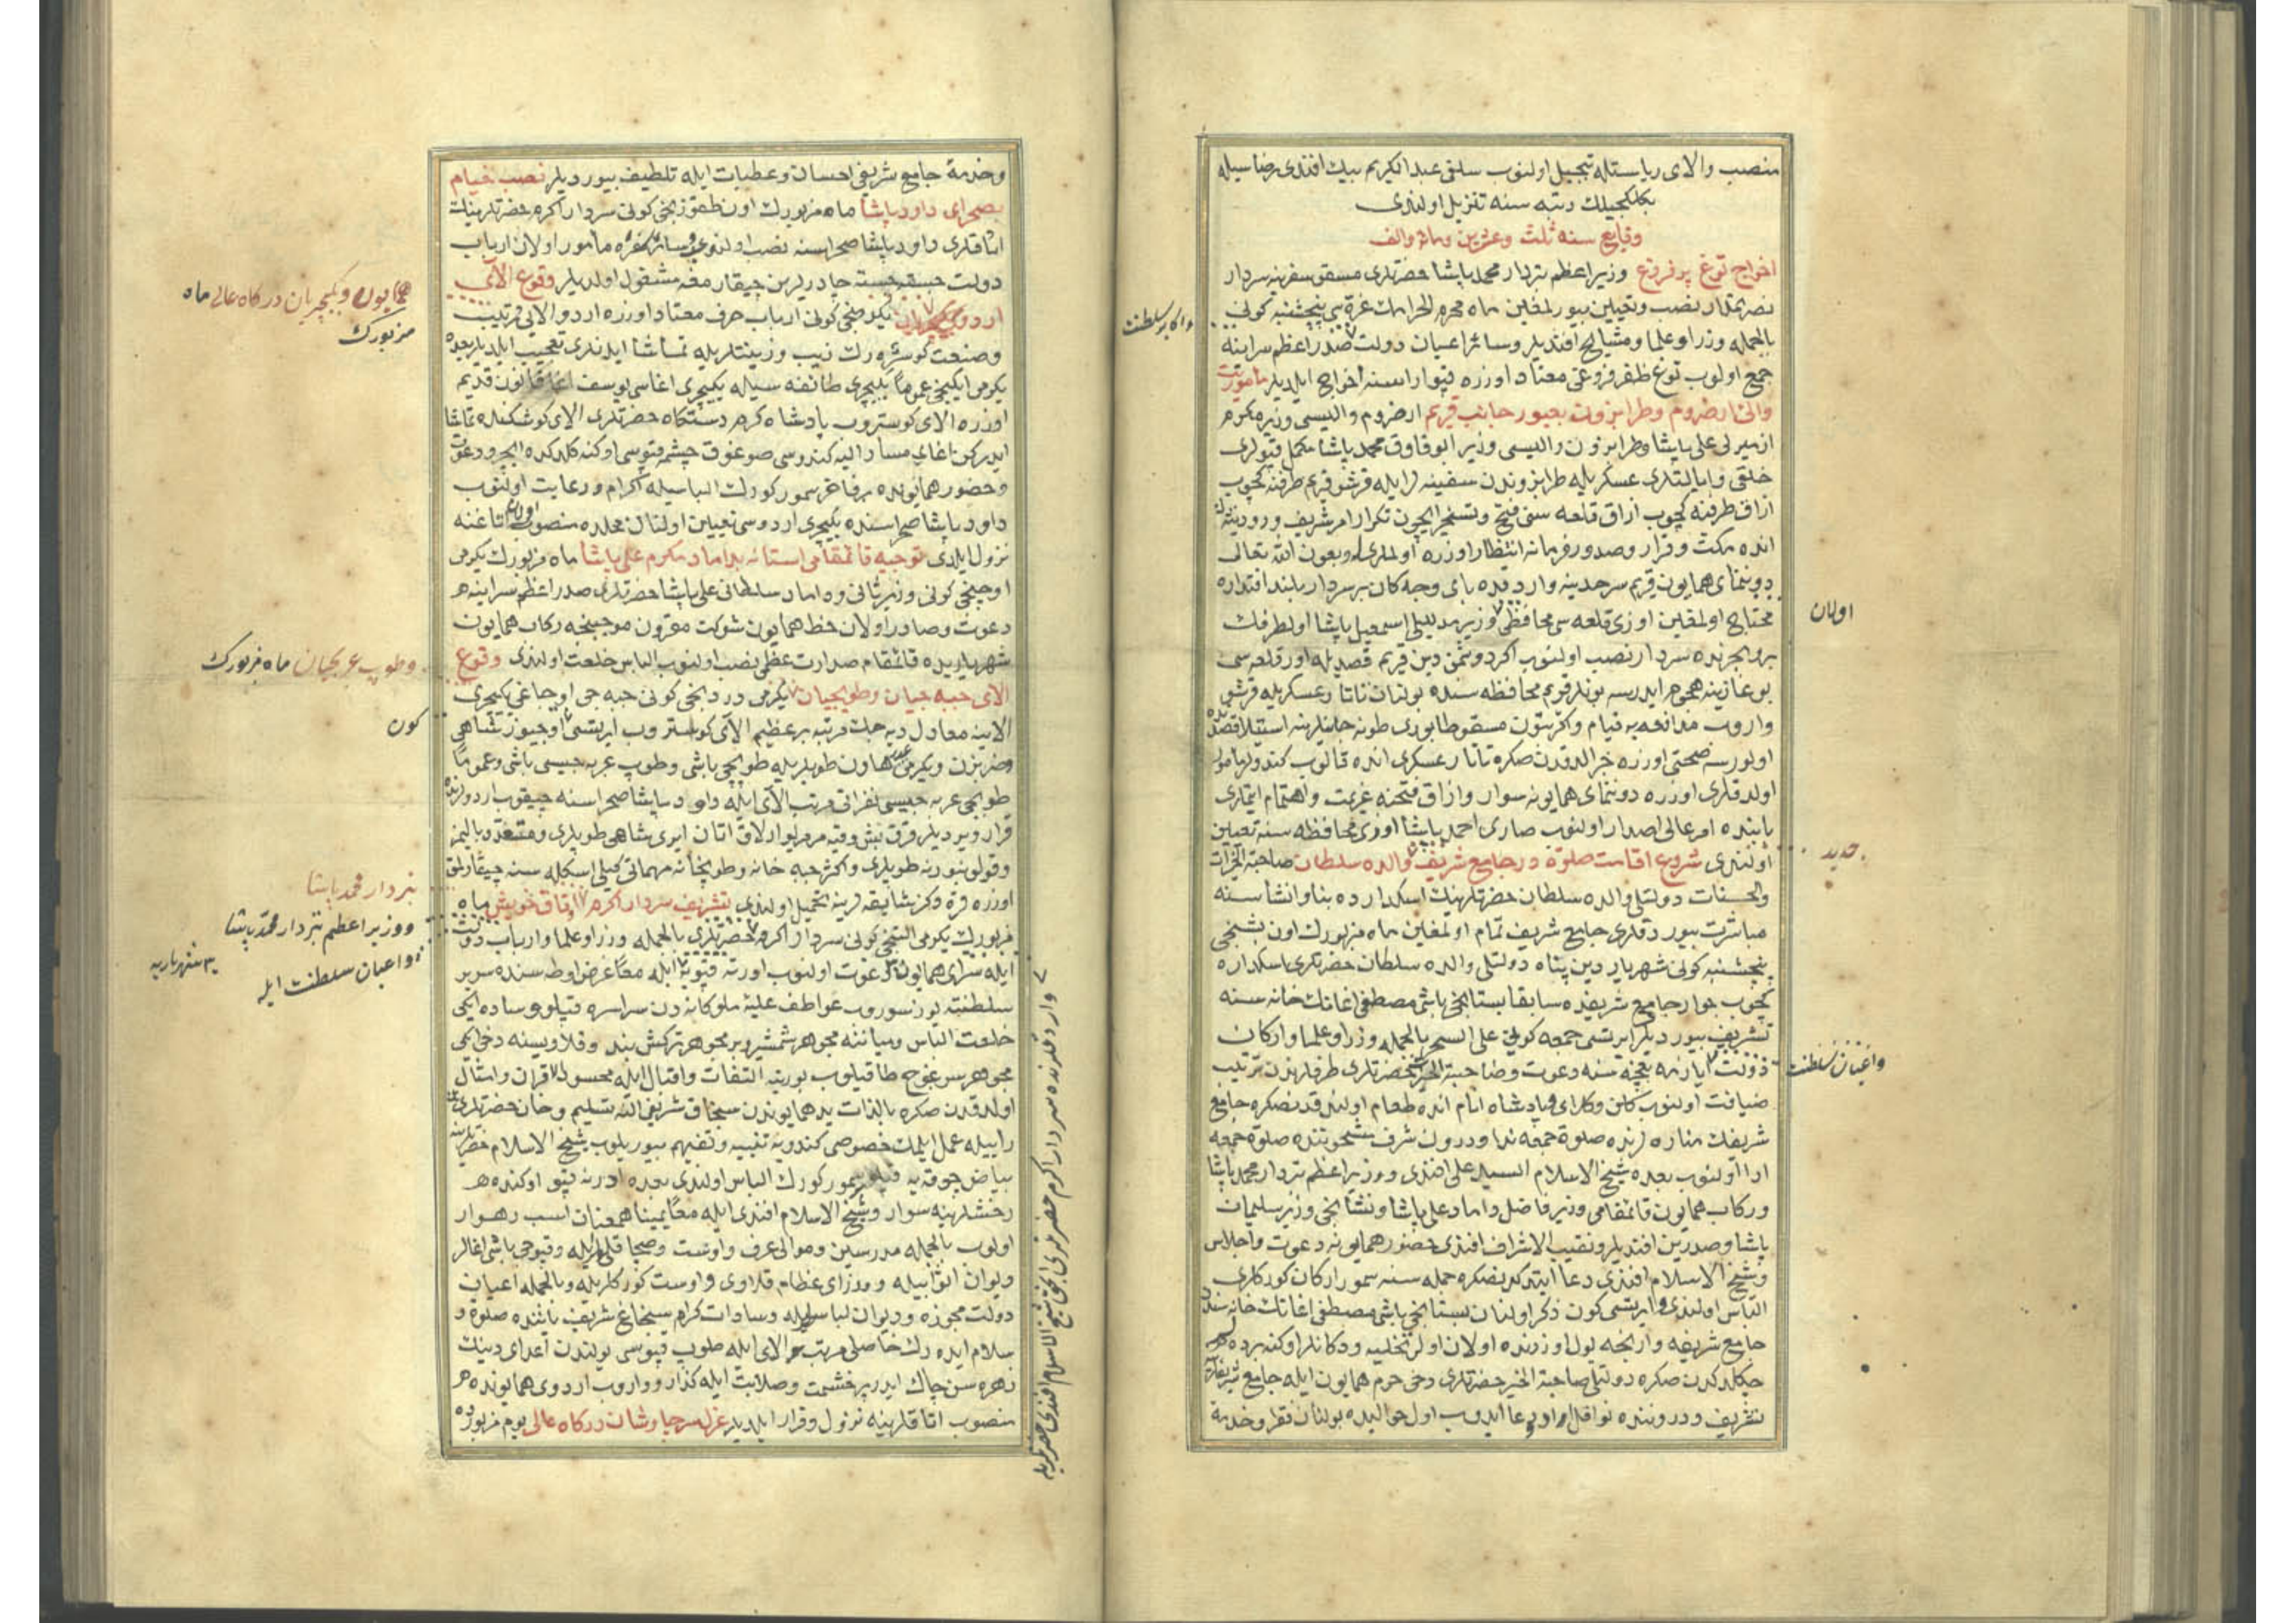 منصب والای ریاستله تبجیل اولنوب سلفی عبد الکریم بیك افندی رضاسیله
بکلکجیلك رتبه سنه تنزیل اولندی
وقایع سنه ثلث وعشرین ومائه والف
اخراج توغ پر فروغ وزیر اعظم بلطه‌جی محمد پاشا حضرتلری مسقو سفرینه سردار
نصرتمدار نصب وتعیین بیورلمغین ماه محرم الحرامك غره سی پنجشنبه کونی
بالجمله وزرا وعلما ومشایخ افندیلر وسائر اعیان دولت صدر اعظم سراینه
جمع اولوب توغ ظفر فروغی معتاد اوزره قپوارسنه اخراج ایلدیلر مأموریت
والئ ارضروم وطرابزون بعبور جانب قریم ارضروم والیسی وزیر مکرم
ازمیرلی علی پاشا وطرابزون والیسی وزیر ابو قاوق محمد پاشا مکمل قپولری
خلقی وایالتلری عسکریله طرابزوندن سفینه لر ایله قرشو قریم طرفنه کچوب
ازاق طرفنه کچوب ازاق قلعه سنی فتح وتسخیر ایچون تکرار امر شریف ورودینه دك
انده مکث وقرار وصدور فرمانه انتظار اوزره اولملری وبعون الله تعالی
دونمای همایون قریم سرحدینه واردقده بای وجه کان بر سردار بلند اقتداره
محتاج اولمغین اوزی قلعه سی محافظی وزیر مدللی اسمعیل پاشا اولطرفك
بر وبحرنده سردار نصب اولنوب اکر دوشمن دین قریم قصدیله اور قلعه سی
بوغازینه هجوم ایدرسه بونلر قوم محافظه سنده بولنان تاتار عسکریله قرشو
واروب مدافعه یه قیام واکر بتون مسقو طابوری طونه جانبلرینه استیلا قصدنده
اولورسه صحتی اوزره خبر الدقدن صکره تاتار عسکری انده قالوب کندولر مأمور
اولدقلری اوزره دونمای همایونه سوار وازاق فتحنه عزیمت واهتمام ایتملری
بابنده امر عالی اصدار اولنوب صاری احمد پاشا اوزی محافظه سنه تعیین
اولندی شروع اقامت صلوة در جامع شریف والده سلطان صاحبة الخیرات
والحسنات دولتلی والده سلطان حضرتلرینك اسکدارده بنا وانشاسنه
مباشرت بیوردقلری جامع شریف تمام اولمغین ماه مزبورك اون بشنجی
پنجشنبه کونی شهریار دین پناه دولتلی والده سلطان حضرتلری اسکداره
کچوب جوار جامع شریفده سابقا بستانجی باشی مصطفی اغانك خانه سنه
تشریف بیوردیلر ایرتسی جمعه کونی علی السحر بالجمله وزرا وعلما وارکان
دولت ایازمه بغچه سنه دعوت وصاحبة الخیر حضرتلری طرفلرندن ترتیب
ضیافت اولنوب کلن وکلای پادشاه انام انده طعام اولندقدنصکره جامع
شریفك مناره لرنده صلوة جمعه ندا ودرون شرف مشحوننده صلوة جمعه
ادا اولنوب بعده شیخ الاسلام السید علی افندی ووزیر اعظم محمد پاشا
ورکاب همایون قائمقامی وزیر فاضل داماد علی پاشا ونشانجی وزیر سلیمان
پاشا وصدرین افندیلر ونقیب الاشراف افندی حضور همایونه دعوت واجلاس
وشیخ الاسلام افندی دعا ایتدکدنصکره جمله سنه سمور ارکان کورکلری
الباس اولندی وایرتسی کون ذکر اولنان بستانجی باشی مصطفی اغانك خانه سندن
جامع شریفه وارنجه یول اوزرنده اولان اولر تخلیه ودکانلر اوکنه پرده لر
چکلدکدن صکره دولتلی صاحبة الخیر حضرتلری دخی حرم همایون ایله جامع شریفلرینه
تشریف ودروننده نوافل ادا ودعا ایدوب اول حوالیده بولنان فقرا وخدمه
واکابر سلطنت
اولان
جدید
واعیان سلطنت
وخدمهٔ جامع شریفی احسان وعطیات ایله تلطیف بیوردیلر نصب خیام
بصحرای داود پاشا ماه مزبورك اون طقوزنجی کونی سردار اکرم حضرتلرینك
اتاقلری داود پاشا صحراسنه نصب اولنوب وسائر سفره مأمور اولان ارباب
دولت جسته جسته چادرلرین چیقارمغه مشغول اولدیلر وقوع الای
اردوی یکرمنجی کونی ارباب حرف معتاد اوزره اردو الایی ترتیب
وصنعت کوستره رك زیب وزینتلریله تماشا ایدنلری تعجیب ایلدیلر بعده
یکرمی ایکنجی عموماً یکیچری طائفه سیله یکیچری اغاسی یوسف اغا قانون قدیم
اوزره الای کوستروب پادشاه کرم دستکاه حضرتلری الای کوشکنده تماشا
ایدرکن اغای مشار الیه کندوسی صوغوق چشمه قپوسی اوکنه کلدکده ایچرو دعوت
وحضور همایونده برفاخر سمور کورك الباسیله اکرام ورعایت اولنوب
داود پاشا صحراسنده یکیچری اردوسی تعیین اولنان محلده منصوب اولان اتاغنه
نزول ایلدی توجیه قائمقامی استانه بداماد مکرم علی پاشا ماه مزبورك یکرمی
اوچنجی کونی وزیر ثانی وداماد سلطانی علی پاشا حضرتلری صدر اعظم سراینه
دعوت وصادر اولان خط همایون شوکت مقرون موجبنجه رکاب همایون
شهریاریده قائمقام صدارت عظمی نصب اولنوب الباس خلعت اولندی وقوع
الای جبه جیان وطوپجیان یکرمی دردنجی کونی جبه جی اوجاغی یکیچری
الاینه معادل دیه جك مرتبه بر عظیم الای کوستروب ایرتسی اوچیوز شاهی
وضربزن ویکرمی عدد هاون طوپلریله طوپجی باشی وطوپ عربه جیسی باشی وعموماً
طوپجی وعربه جیسی نفراتی مرتب الای ایله داود پاشا صحراسنه چیقوب اردولرنده
قرار ویردیلر قرق بش وقیه مرمر یوارلاق اتان ایری شاهی طوپلری ومتعدد بالیمز
وقولونبورنه طوپلری واکثر جبه خانه وطوپخانه مهماتی کیلی اسکله سنه چیقارلمق
اوزره قره دکز شایقه لرینه تحمیل اولندی تشریف سردار اکرم اوتاق خویش ماه
مزبورك یکرمی التنجی کونی سردار اکرم حضرتلری بالجمله وزرا وعلما وارباب دولت
ایله سرای همایونه دعوت اولنوب اورته قپویه ایله معاً عرض اوطه سنده سریر
سلطنته یوز سوروب عواطف علیهٔ ملوکانه دن سراسره قپلو وساده ایکی
خلعت الباس ومیاننه مجوهر شمشیر وبر مجوهر ترکش بند وقلاویسنه دخی ایکی
مجوهر سرغوج طاقیلوب بو رتبه التفات واقبال ایله محسود الاقران وامثال
اولدقدن صکره بالذات ید همایوندن سنجاق شریفی الله تسلیم وخان حضرتلری
رأییله عمل ایلمك خصوصی کندویه تنبیه وتفهیم بیوریلوب شیخ الاسلام حضرتلرینه
بیاض چوقه یه قپلو سمور کورك الباس اولندی بعده اورته قپو اوکنده
رخشلرینه سوار وشیخ الاسلام افندی ایله معاً یمیناً همعنان اسب رهوار
اولوب بالجمله مدرسین وموالی عرف واوست وصچاقلریله وقپوجی باشی اغالر
دیوان اثوابیله ووزرای عظام قلاوی واوست کورکلریله وبالجمله اعیان
دولت مجوزه ودیوان لباسلریله وسادات کرام سنجاغ شریف یاننده صلوة و
سلام ایده رك خاصلی مرتب الای ایله طوپ قپوسی یولندن اعدای دینك
زهره سن چاك ایدر بر حشمت وصلابت ایله کذار وواروب اردوی همایونده
منصوب اتاقلرینه نزول وقرار ایلدیلر عزل سر چاوشان درکاه عالی یوم مزبورده
همایون ویکیچریان درکاه عالی ماه
مزبورك
وطوپ عربجیان ماه مزبورك
کون
محمد پاشا
ووزیر اعظم محمد پاشا
واعیان سلطنت ایله
شهریاریه
واردقلرنده سردار اکرم حضرتلری شیخ الاسلام افندی حضرتلریله